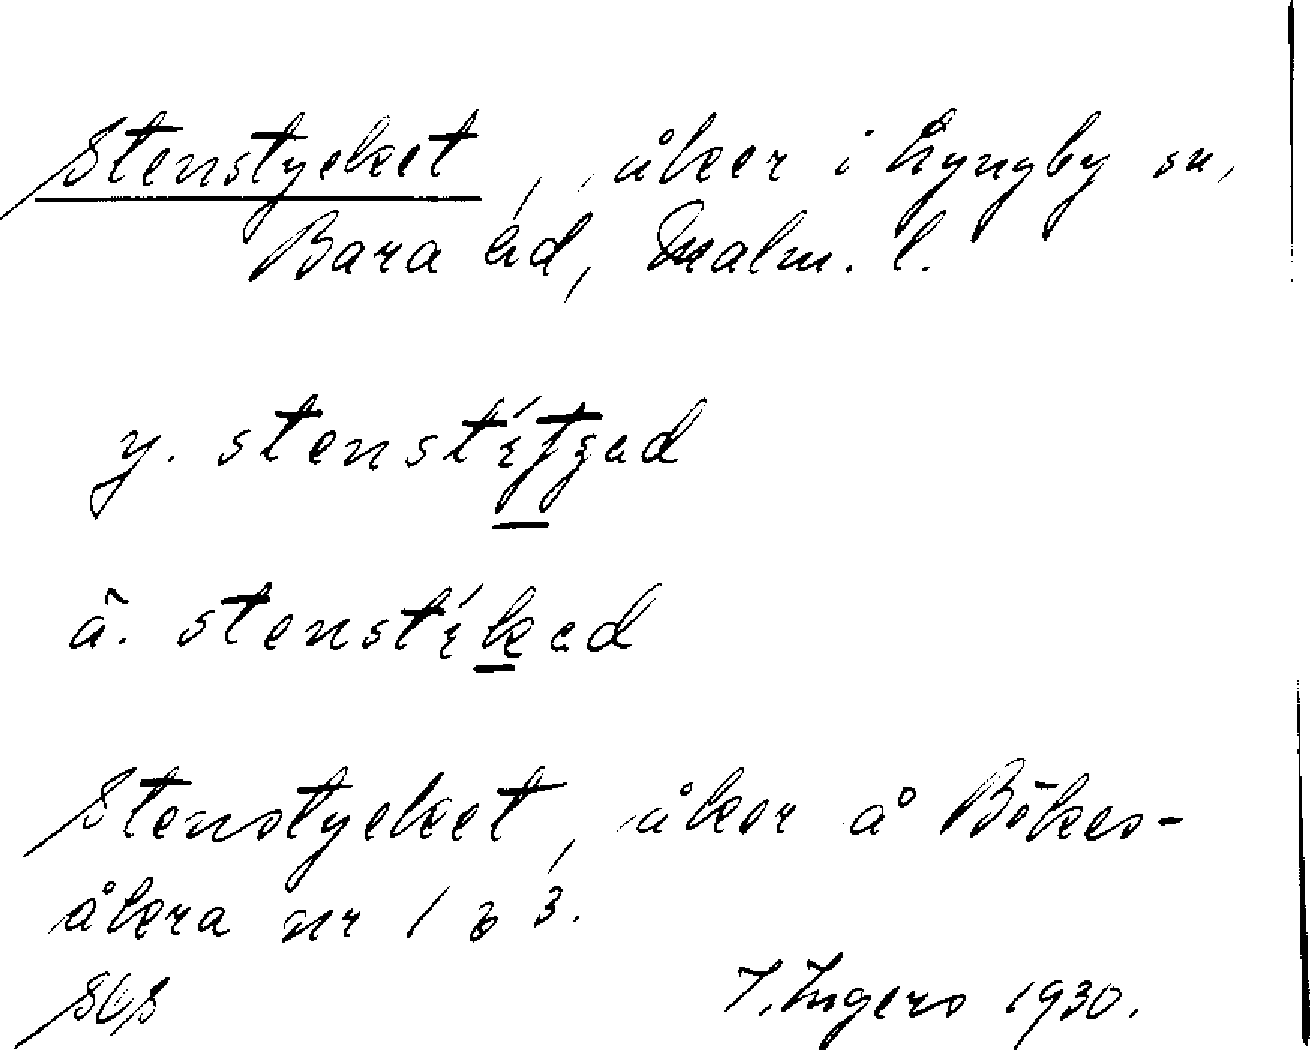 Stenstycket, åker i Lyngby sn,
Bara hd, Malm. l.
y.
ä. stenstíkad
Stenstycket, åker å Bökes-
åkra nr 1 o 3.
I. Ingers 1930.